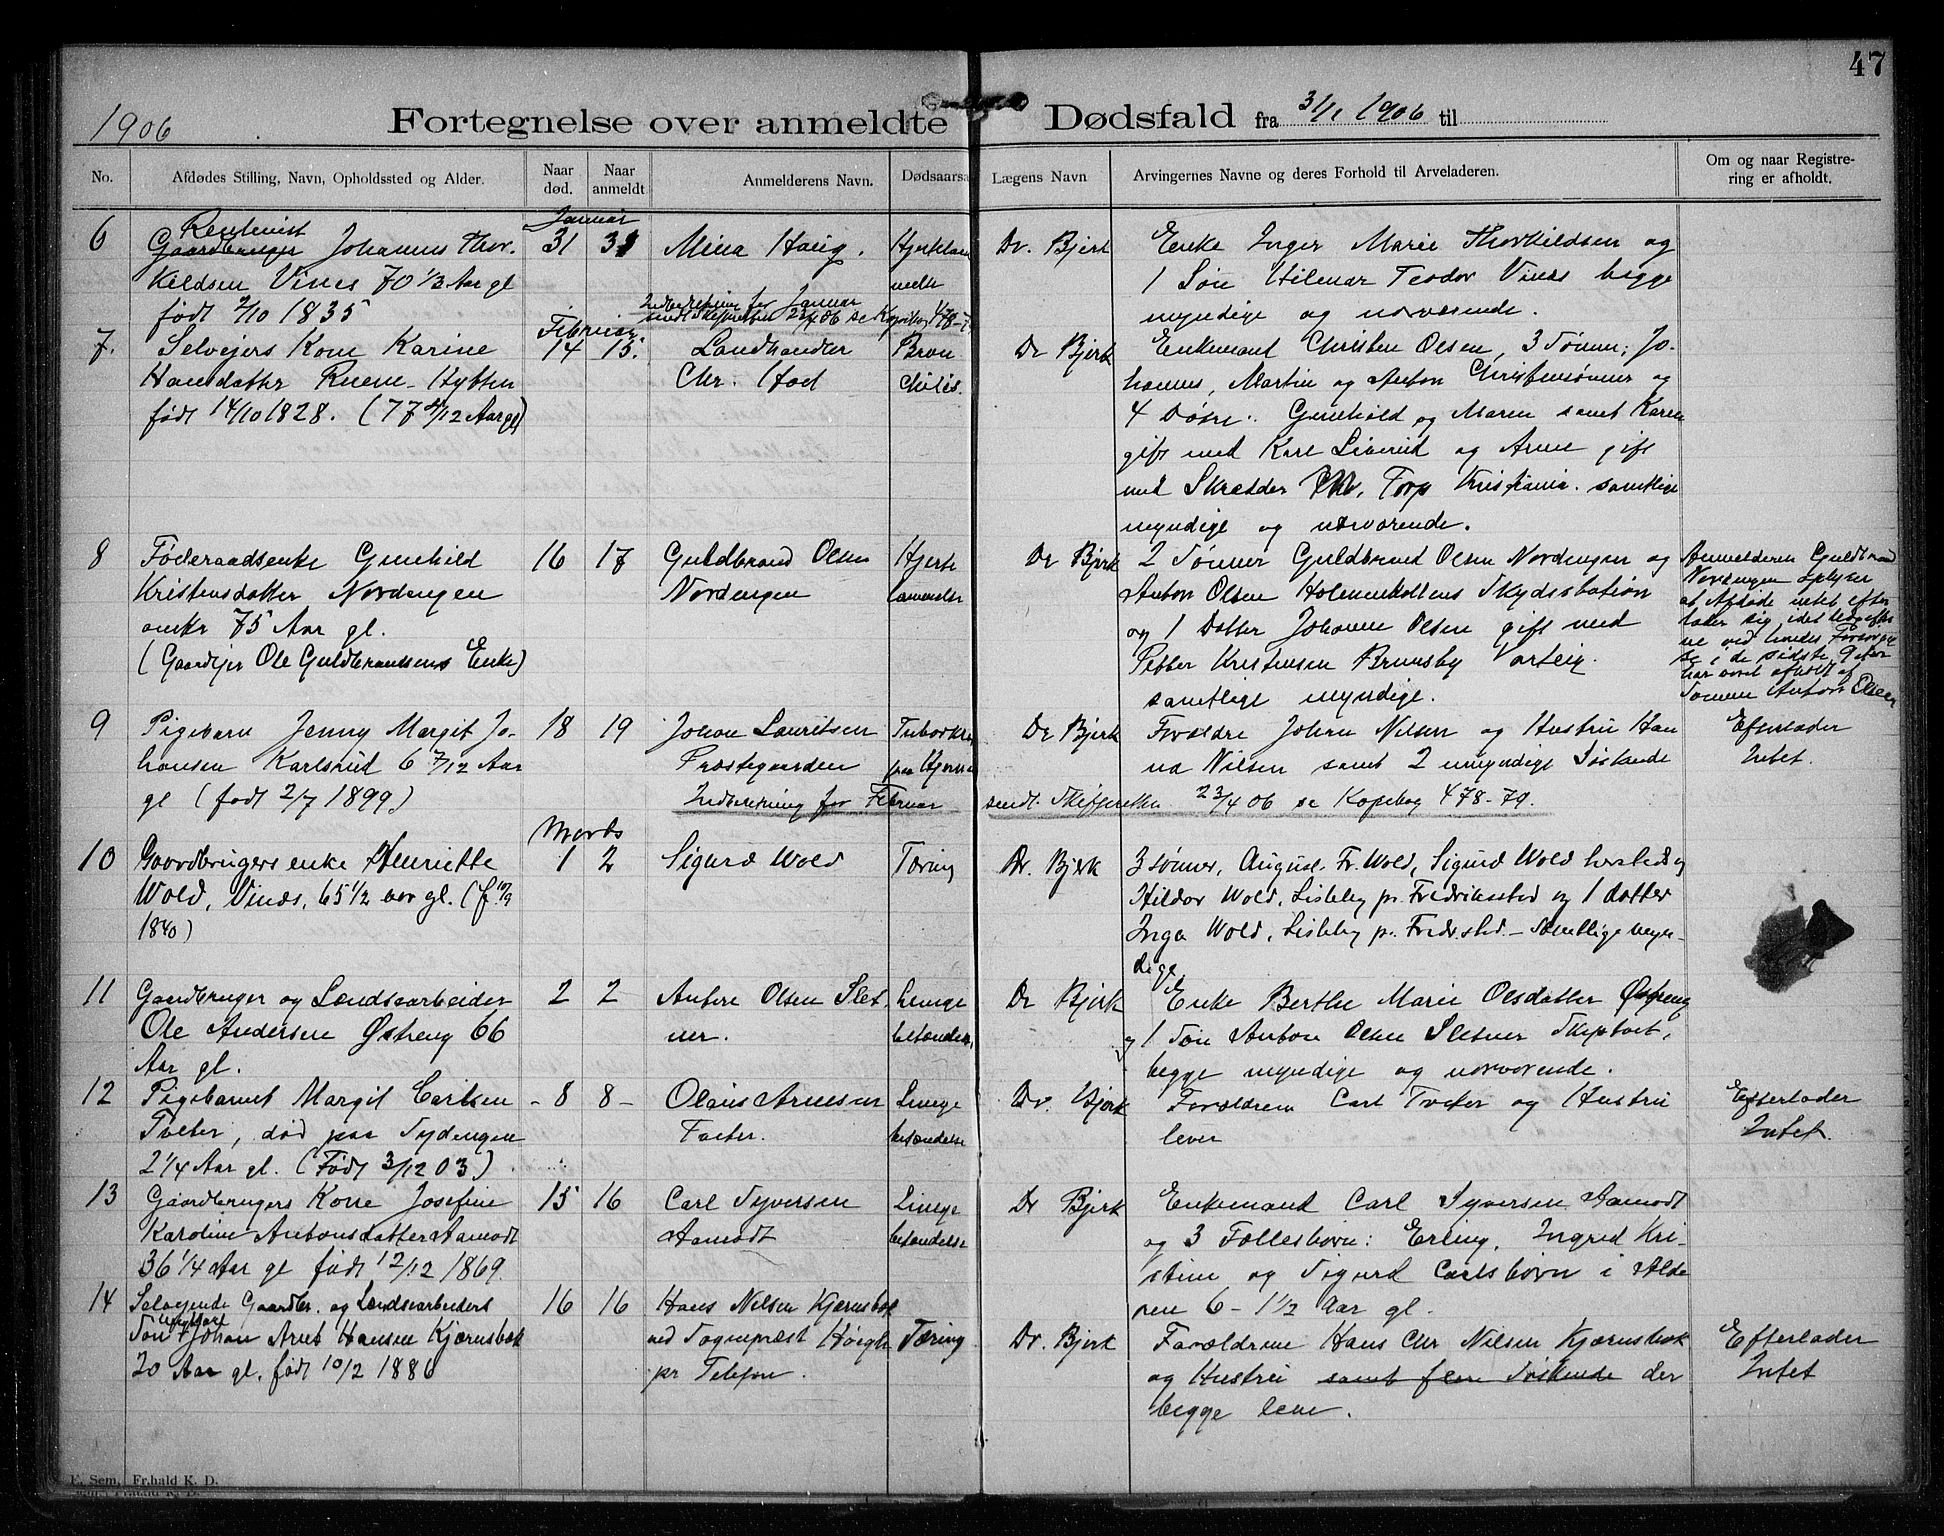 47
1906
Fortegnelse over anmeldte Dødsfald fra 31/1 1906 til
No.
Afdødes Stilling, Navn, Opholdssted og Alder.
Naar død.
Naar anmeldt
Anmelderens Navn.
Dødsaarsa
Lægens Navn
Arvingernes Navne og deres Forhold til Arveladeren.
Om og naar Registre-
ring er afholdt.
Januar
6 Rentenist
Gaardbruger Johannes Thor- 31 31 Mina Haug. Hjerklam Dr. Bjerk Enke Inger Marie Thorkildsen og
kildsen Vines 70 1/3 Aar gl melse 1 Søn Hilmar Teodor Vines begge
født 2/10 1835 myndige og nærværende.
Indberetning for Januar
sendt Skifteretten 23/4 06 se Kopibog 478-7
Februar
7. Selvejers Kone Karine 14 15. Landhandler Bron Dr Bjerk Enkemand Christen Olsen, 3 Sønner; Jo-
Hansdatter Ruene-Hytten Chr. Hod chitis. hannes, Martin og Anton Christensønner og
født 14/10 1828. (77 4/12 Aar gl) 4 Døtre: Gunhild og Maren samt Karen
gift med Karl Liverud og Anne gift
med Skrædder Torp Kristiania. samtlige
myndige og nærværende.
8 Føderaadsenke Gunhild 16 17 Guldbrand Olsen Hjerte Dr Bjerk 2 Sønner Guldbrand Olsen Nordengen og
Kristensdatter Nordengen Nordengen lammelse Anton Olsen Holmenkollens Skydsstation
omkr 75 Aar gl. og 1 Datter Johanne Olsen gift med
(Gaardejer Ole Guldbrandsens Enke) Petter Kristensen Brunsby Varteig.
samtlige myndige.
Anmelderen Guldbrand
Nordengen oplyser
at Afdøde intet efter
lader sig, idet
ne ved hendes Forsørgel
se i de sidste 9 Aar
har været afholdt af
Sønnen Anton Olsen
9 Pigebarn Jenny Margit Jo- 18 19 Johan Lauritsen Tuberkler Dr Bjerk Forældre Johan Nilsen og Hustru Han Efterlader
hansen Karlsrud 6 7/12 Aar Præstegaarden paa Hjernen na Nilsen samt 2 umyndige Søskende Intet.
gl (født 2/7 1899.)
Indberetning for Februar sendt Skifteretten 23/4 06 se Kopibog 478-79.
Marts
10 Gaardbrugers enke Henriette 1 2 Sigurd Wold Tæring Dr. Bjerk 3 sønner, August Fr. Wold, Sigurd Wold hersteds og
Wold, Vines, 65 1/2 aar gl. (f. 17/9 Hildor Wold, Lisleby pr. Fredriksstad og 1 datter
1840) Inga Wold, Lisleby pr. Fredr.stad. - Samtlige myn-
dige
11 Gaardbruger og Landsarbeider 2 2 Anton Olsen Slet- Lunge Dr Bjerk Enke Berthe Marie Olsdatter Østreng
Ole Andersen Østreng 66 ner. betændelse, og 1 Søn Anton Olsen Sletner Skiptvet,
Aar gl. begge myndige og nærværende.
12 Pigebarnet Margit Carlsen - 8 8 - Olaus Arnesen Lunge Dr. Bjerk Forældrene Carl Tveter og Hustru Efterlader
Tveter, død paa Tydengen Tveter. betændelse lever Intet.
2 1/4 Aar gl. (Født 3/12 03)
13 Gaardbrugers Kone Josefine 15 16 Carl Syversen Lunge Dr Bjerk Enkemand Carl Syversen Aamodt
Karoline Antonsdatter Aamodt Aamodt betændelse og 3 Fællesbørn: Erling, Ingrid Kri-
36 1/4 Aar gl født 12/12 1869. stine og Sigurd Carlsbørn i Alde
ren 6 - 1 1/2 Aar gl.
14 Selvejende Gaardbr. og Landsarbeiders 16 16 Hans Nilsen Kjærnsbæk Tæring Dr. Bjerk Forældrene Hans Chr Nilsen Kjærnsbæk Efterlader
Søn Johan Arnt Hansen Kjærnsbæk ved Sogneprest Høigh og Hustru samt flere Søskende der Intet
20 Aar gl. født 10/2 1886 pr Telefon. begge lever.
E. Sem, Fr.hald K. D.